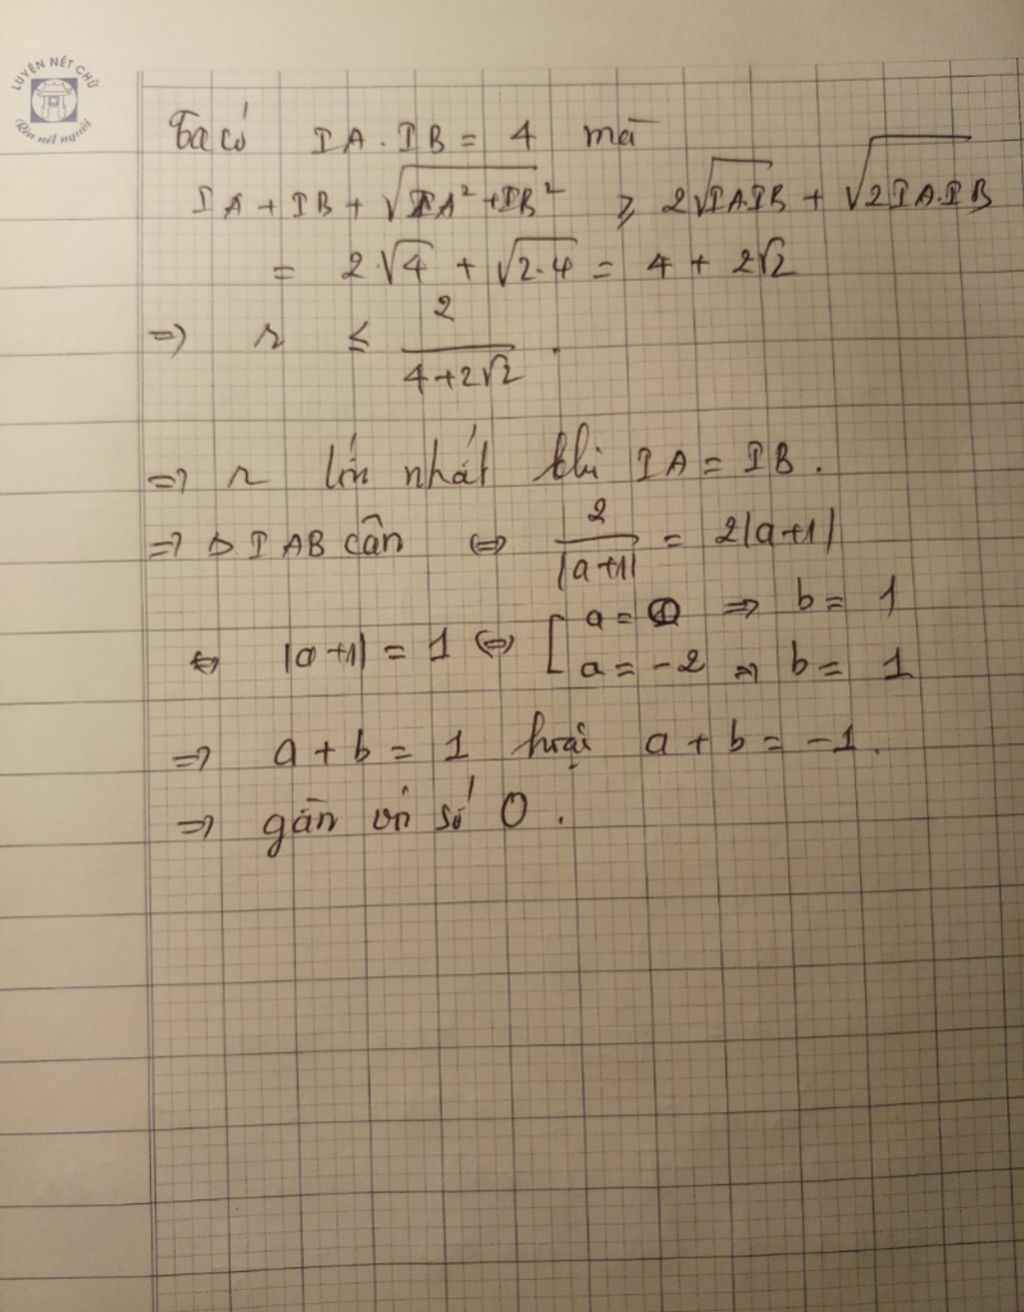 LUYỆN NẾT CHỮ
Rèn nết người
Ta có IA . IB = 4 mà
IA + IB + √(IA² + IB²) ≥ 2√(IA.IB) + √(2IA.IB)
= 2√4 + √(2.4) = 4 + 2√2
=> r ≤ 2/(4+2√2) .
=> r lớn nhất khi IA = IB .
=> Δ IAB cân <=> 2/|a+1| = 2|a+1|
<=> |a+1| = 1 <=> [ a = 0 => b = 1
a = -2 => b = 1
=> a + b = 1 hoặc a + b = -1 .
=> gần với số 0 .